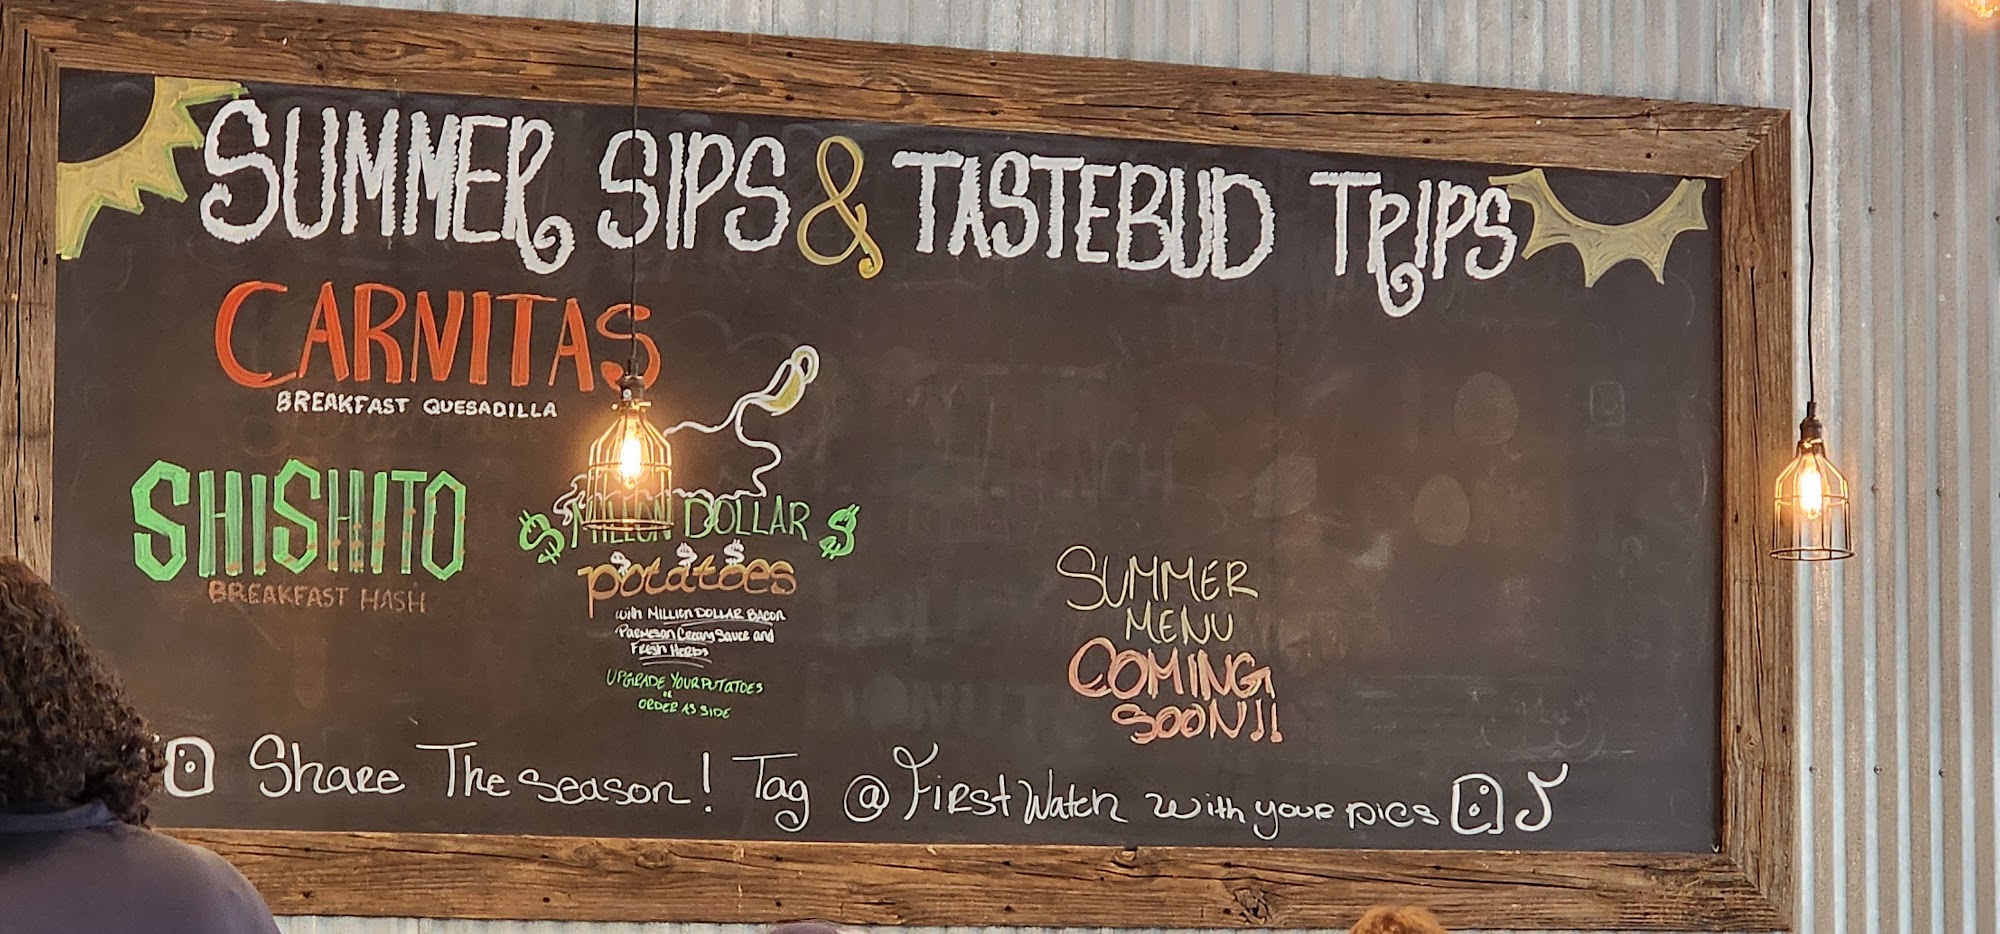 SUMMER SIPS & TASTEBUD TRIPS
CARNITAS
BREAKFAST QUESADILLA
SHISHITO
BREAKFAST HASH
$ MILLION DOLLAR $
potatoes
with MILLION DOLLAR BACON
PARMESAN CREAM SAUCE and
FRESH HERBS
UPGRADE YOUR POTATOES
OR
ORDER AS SIDE
SUMMER
MENU
COMING
SOON!!
Share The Season! Tag @FirstWatch with your pics